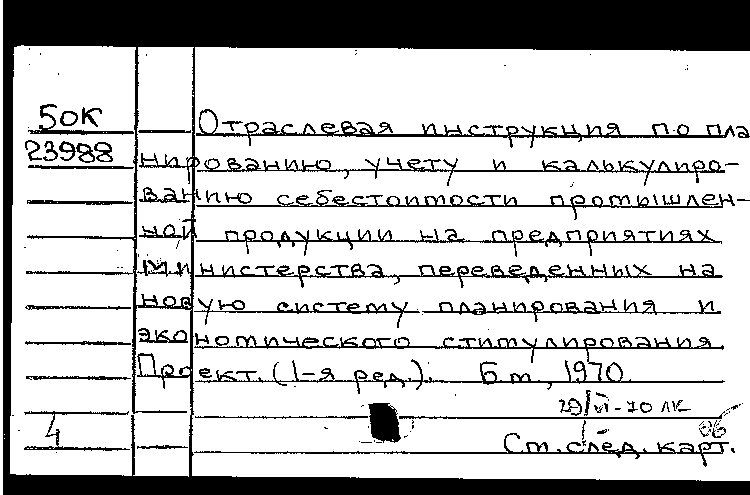 50К
23988
Отраслевая инструкция по пла
нированию, учету и калькулиро-
ванию себестоимости промышлен-
ной продукции на предприятиях
министерства, переведенных на
новую систему планирования и
экономического стимулирования.
Проект. (1-я ред.). Б.м., 1970.
29/VI-70 ЛК
4
См. след. карт.